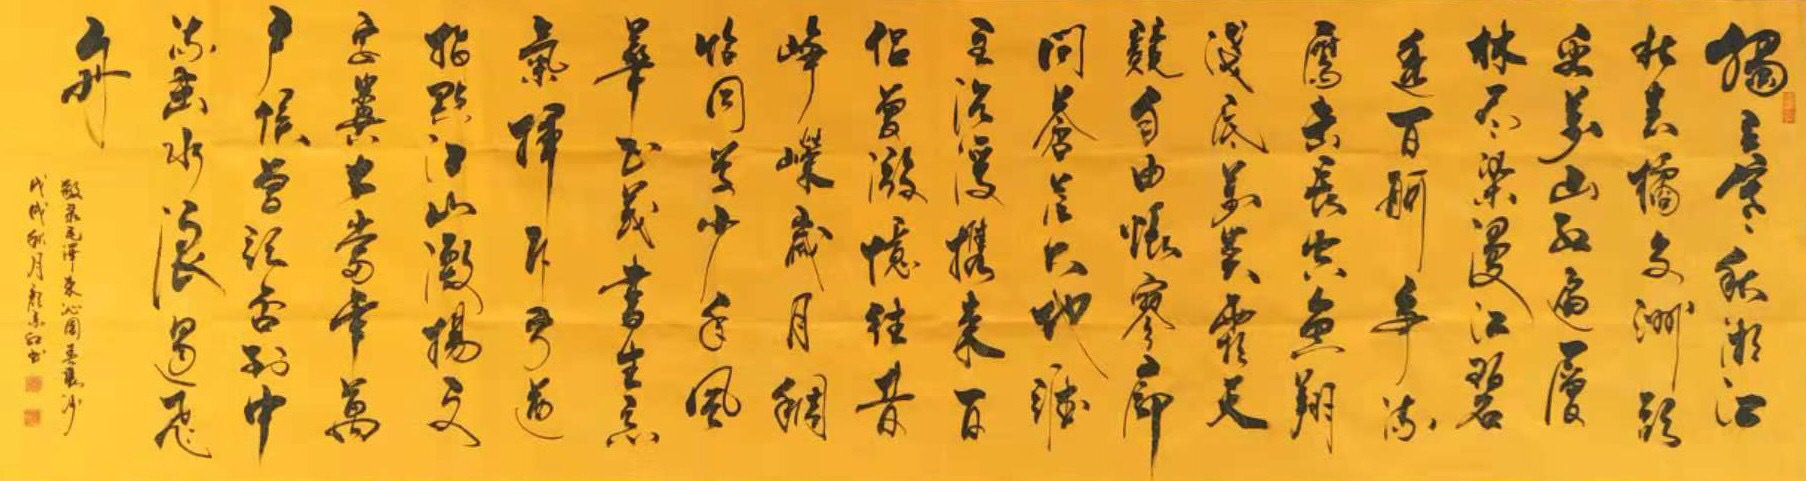 獨立寒秋湘江
北去橘子洲頭
看萬山紅遍層
林盡染漫江碧
透百舸爭流
鷹擊長空魚翔
淺底萬類霜天
競自由悵寥廓
問蒼茫大地誰
主沉浮攜來百
侶曾游憶往昔
崢嶸歲月稠
恰同學少年風
華正茂書生意
氣揮斥方遒
指點江山激揚文
字糞土當年萬
戶侯曾記否到中
流擊水浪遏飛
舟
敬录毛澤東沁園春長沙
戊戌秋月